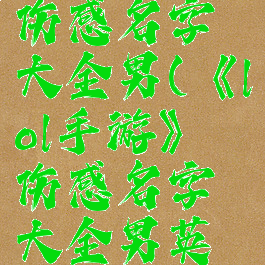 伤感名字
大全男(《l
ol手游》
伤感名字
大全男英